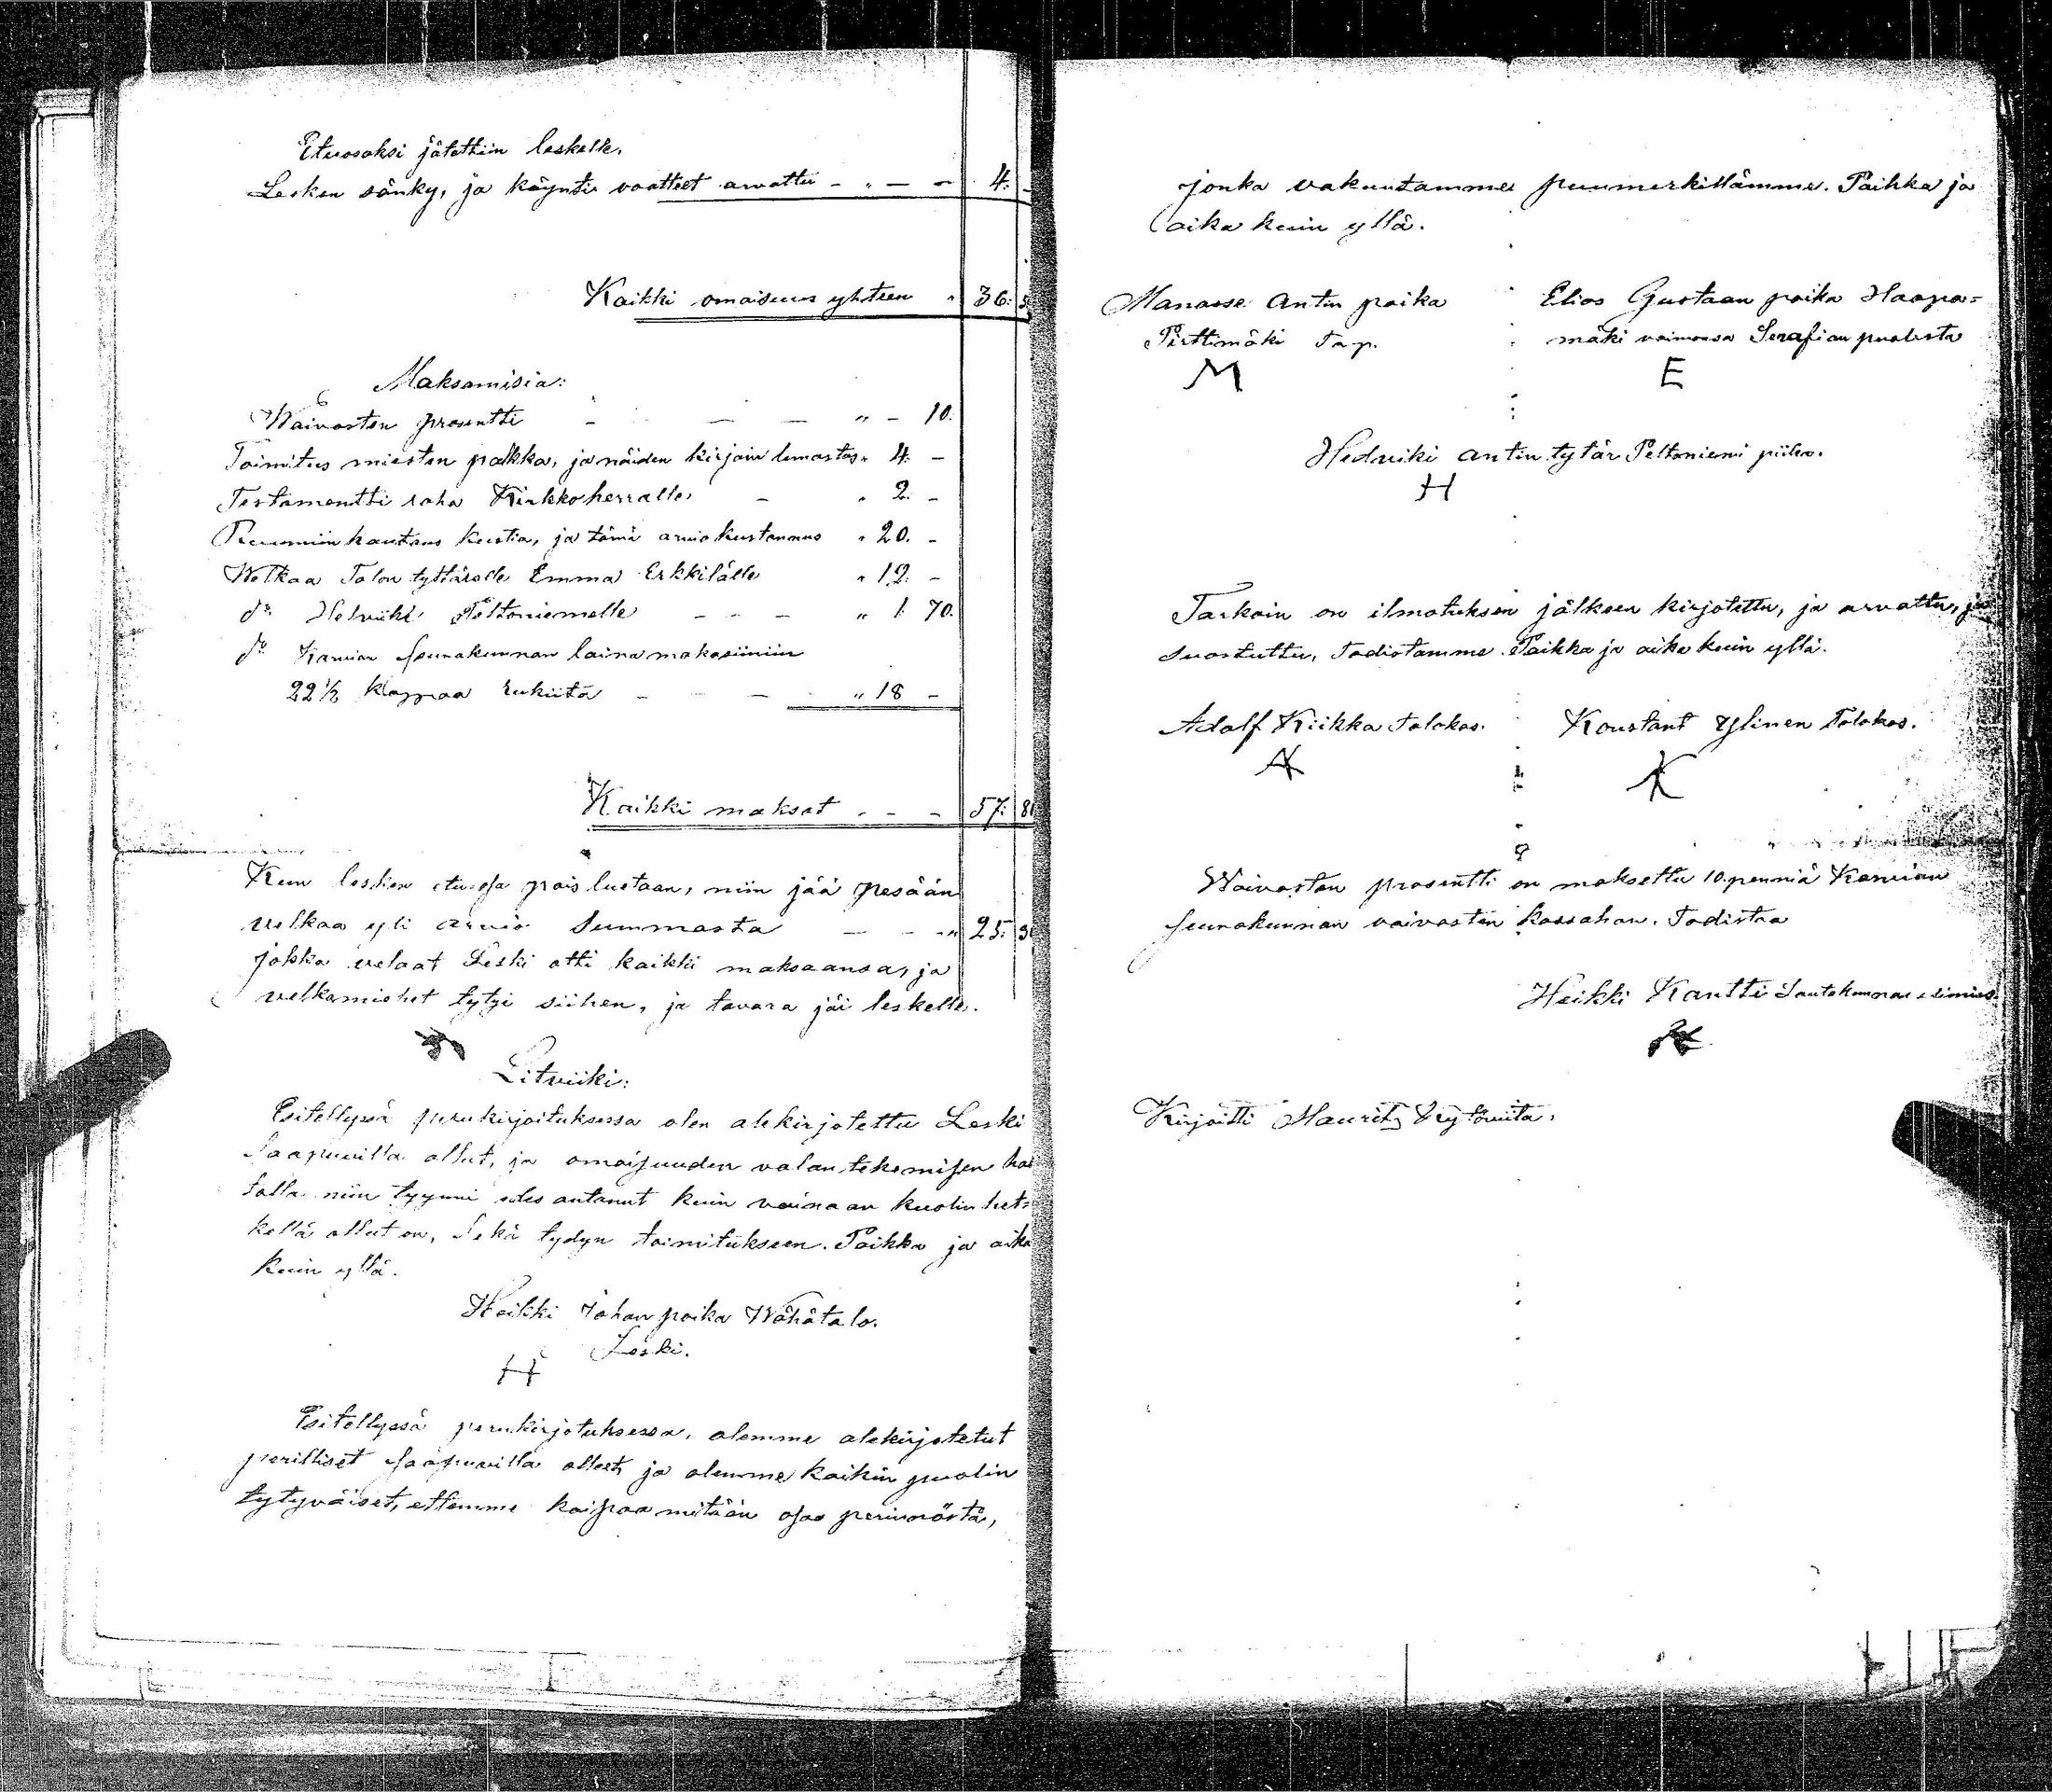 Etuosaksi jätettiin leskelle.
Lesken sänky, ja käynti vaatteet arvattu - " - - 4. -
Kaikki omaisuus yhteen " 36.
Maksamisia:
Waivasten prosentti - - - " - 10.
Toimitus miesten palkka, ja näiden kirjain lunastus " 4. -
Testamentti raha Kirkkoherralle - " 2. -
Ruumiin hautaus kustia, ja tämä arvio kustannus " 20. -
Welkaa Talon tyttärelle Emma Erkkilälle " 12. -
do Helviiki Peltoniemelle - - - " 1. 70.
do Karvian seurakunnan laina makasiiniin
22 1/2 kappaa rukiita - - - " 18 -
Kaikki maksat - - - 57. 8
Kun lesken etuosa pois luetaan, niin jää pesään
velkaa yli arvio Summasta - - " 25.
jokka velaat Leski otti kaikki maksaansa, ja
velkamiehet tytyi siihen, ja tavara jäi leskelle.
Litviiki:
Esitellyssä perukirjoituksessa olen alekirjotettu Leski
saapuvilla ollut, ja omaisuuden valan tekemisen
talla niin tyynni edes antanut kuin vainaan kuolin het-
kellä ollut on, Sekä tydyn toimitukseen. Paikka ja aika
kuin yllä.
Heikki Johan poika Wähätalo.
Leski.
H
Esitellyssä perukirjotuksessa, olemme alekirjotetut
perilliset saapuvilla olleet, ja olemme kaikin puolin
tytyväiset, ettemme kaipaa mitään osaa perinnöstä,
jonka vakuutamme puumerkillämme. Paikka ja
aika kuin yllä.
Manasse Antin poika Elias Gustaan poika Haapa=
Perttimäki Torp. mäki vaimonsa Serafian puolesta
M E
Hedviki Antin tytär Peltoniemi piika.
H
Tarkoin on ilmotuksen jälkeen kirjotettu, ja arvattu, ja
suostuttu, Todistamme. Paikka ja aika kuin yllä.
Adolf Kiikka Talokas. Konstant Ylinen Talokas.
A K
Waivasten prosentti on maksettu 10. penniä Karvian
seurakunnan vaivasten kassahan. Todistaa
Heikki Kantti Lautakunnan esimies.
Kirjoitti Maurits Kytöviita.